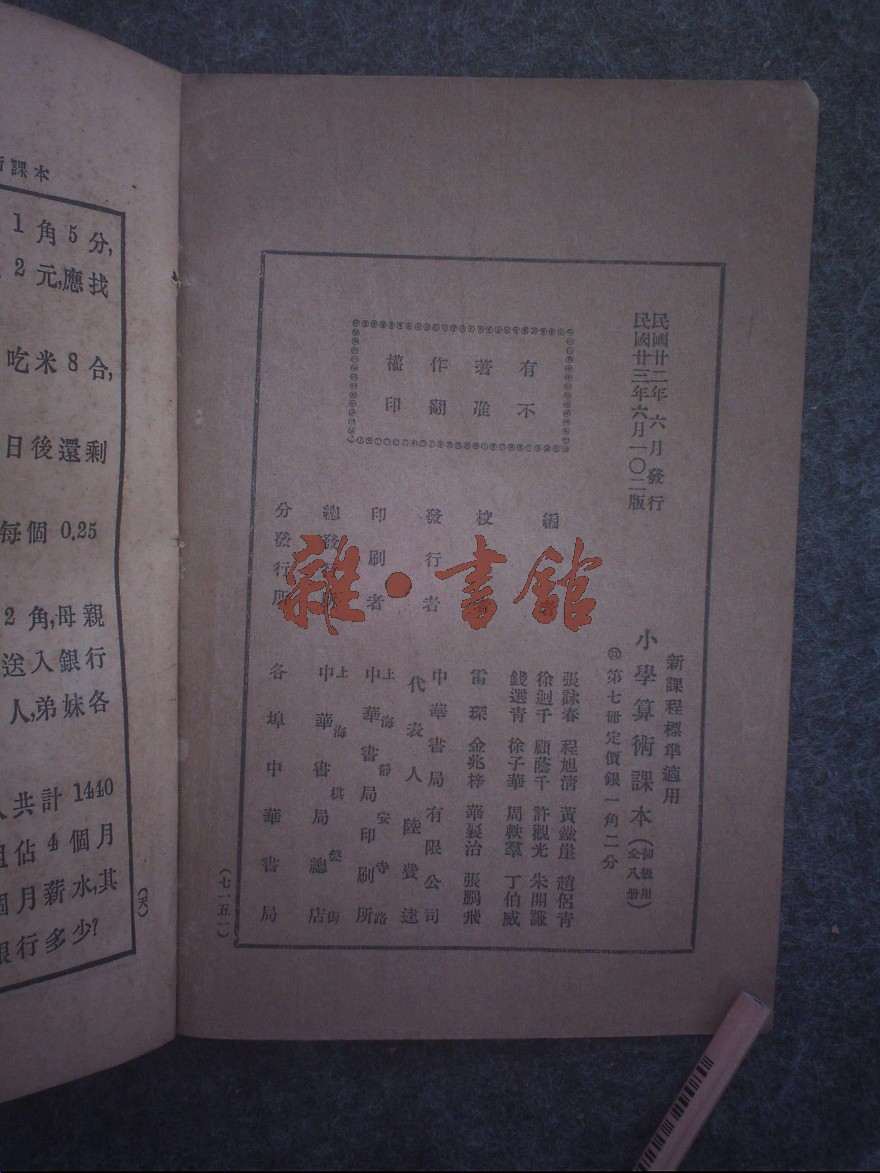 民國廿二年六月發行
民國廿三年六月一〇二版
有著作權
不准翻印
新課程標準適用
小學算術課本(初級用全八册)
第七册定價銀一角二分
編
張詠春 程旭清 黃鐵崖 趙侶青
徐迥千 顧蔭千 許觀光 朱開謙
錢選青 徐子華 周軼羣 丁伯威
校
雷琛 金兆梓 華襄治 張鵬飛
發行者
中華書局有限公司
代表人 陸費逵
印刷者
上海靜安寺路
中華書局印刷所
總發行所
上海棋盤街
中華書局總店
分發行所
各埠中華書局
(七一五一)
雜·書館
課本
1角5分,
2元,應找
吃米8合,
日後還剩
每個0.25
2角,母親
送入銀行
人,弟妹各
共計1440
佔4個月
個月薪水,其
銀行多少?